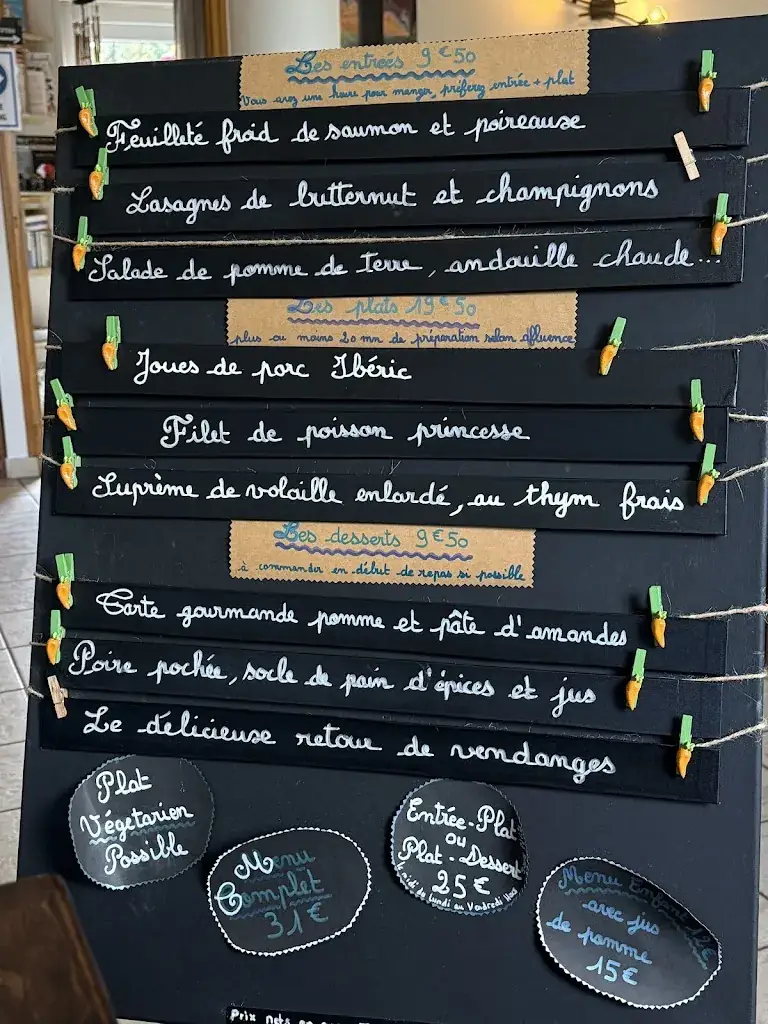 Les entrées 9€50
Vous avez une heure pour manger, préférez entrée + plat
Feuilleté froid de saumon et poireause
Lasagnes de butternut et champignons
Salade de pomme de terre, andouille chaude...
Les plats 19€50
plus ou moins 20 mn de préparation selon affluence
Joues de porc Ibéric
Filet de poisson princesse
Suprême de volaille enlardé, au thym frais
Les desserts 9€50
à commander en début de repas si possible
Tarte gourmande pomme et pâte d'amandes
Poire pochée, socle de pain d'épices et jus
Le délicieuse retour de vendanges
Plat
Végétarien
Possible
Menu
Complet
31€
Entrée-Plat
ou
Plat-Dessert
25€
le midi du Lundi au Vendredi
Menu Enfant
avec jus
de pomme
15€
Prix nets